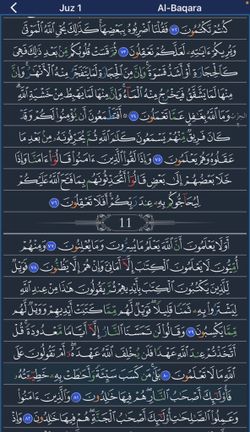 Juz 1
Al-Baqara
كُنتُمْ تَكْتُمُونَ ٧٢ فَقُلْنَا ٱضْرِبُوهُ بِبَعْضِهَا كَذَٰلِكَ يُحْىِ ٱللَّهُ ٱلْمَوْتَىٰ
وَيُرِيكُمْ ءَايَٰتِهِۦ لَعَلَّكُمْ تَعْقِلُونَ ٧٣ ثُمَّ قَسَتْ قُلُوبُكُم مِّنۢ بَعْدِ ذَٰلِكَ فَهِىَ
كَٱلْحِجَارَةِ أَوْ أَشَدُّ قَسْوَةً وَإِنَّ مِنَ ٱلْحِجَارَةِ لَمَا يَتَفَجَّرُ مِنْهُ ٱلْأَنْهَٰرُ وَإِنَّ
مِنْهَا لَمَا يَشَّقَّقُ فَيَخْرُجُ مِنْهُ ٱلْمَآءُ وَإِنَّ مِنْهَا لَمَا يَهْبِطُ مِنْ خَشْيَةِ ٱللَّهِ
وَمَا ٱللَّهُ بِغَٰفِلٍ عَمَّا تَعْمَلُونَ ٧٤ أَفَتَطْمَعُونَ أَن يُؤْمِنُوا۟ لَكُمْ وَقَدْ
كَانَ فَرِيقٌ مِّنْهُمْ يَسْمَعُونَ كَلَٰمَ ٱللَّهِ ثُمَّ يُحَرِّفُونَهُۥ مِنۢ بَعْدِ مَا
عَقَلُوهُ وَهُمْ يَعْلَمُونَ ٧٥ وَإِذَا لَقُوا۟ ٱلَّذِينَ ءَامَنُوا۟ قَالُوٓا۟ ءَامَنَّا وَإِذَا
خَلَا بَعْضُهُمْ إِلَىٰ بَعْضٍ قَالُوٓا۟ أَتُحَدِّثُونَهُم بِمَا فَتَحَ ٱللَّهُ عَلَيْكُمْ
لِيُحَآجُّوكُم بِهِۦ عِندَ رَبِّكُمْ أَفَلَا تَعْقِلُونَ ٧٦
11
أَوَلَا يَعْلَمُونَ أَنَّ ٱللَّهَ يَعْلَمُ مَا يُسِرُّونَ وَمَا يُعْلِنُونَ ٧٧ وَمِنْهُمْ
أُمِّيُّونَ لَا يَعْلَمُونَ ٱلْكِتَٰبَ إِلَّآ أَمَانِىَّ وَإِنْ هُمْ إِلَّا يَظُنُّونَ ٧٨ فَوَيْلٌ
لِّلَّذِينَ يَكْتُبُونَ ٱلْكِتَٰبَ بِأَيْدِيهِمْ ثُمَّ يَقُولُونَ هَٰذَا مِنْ عِندِ ٱللَّهِ
لِيَشْتَرُوا۟ بِهِۦ ثَمَنًا قَلِيلًا فَوَيْلٌ لَّهُم مِّمَّا كَتَبَتْ أَيْدِيهِمْ وَوَيْلٌ لَّهُم
مِّمَّا يَكْسِبُونَ ٧٩ وَقَالُوا۟ لَن تَمَسَّنَا ٱلنَّارُ إِلَّآ أَيَّامًا مَّعْدُودَةً قُلْ
أَتَّخَذْتُمْ عِندَ ٱللَّهِ عَهْدًا فَلَن يُخْلِفَ ٱللَّهُ عَهْدَهُۥٓ أَمْ تَقُولُونَ عَلَى
ٱللَّهِ مَا لَا تَعْلَمُونَ ٨٠ بَلَىٰ مَن كَسَبَ سَيِّئَةً وَأَحَٰطَتْ بِهِۦ خَطِيٓـَٔتُهُۥ
فَأُو۟لَٰٓئِكَ أَصْحَٰبُ ٱلنَّارِ هُمْ فِيهَا خَٰلِدُونَ ٨١ وَٱلَّذِينَ ءَامَنُوا۟
وَعَمِلُوا۟ ٱلصَّٰلِحَٰتِ أُو۟لَٰٓئِكَ أَصْحَٰبُ ٱلْجَنَّةِ هُمْ فِيهَا خَٰلِدُونَ ٨٢